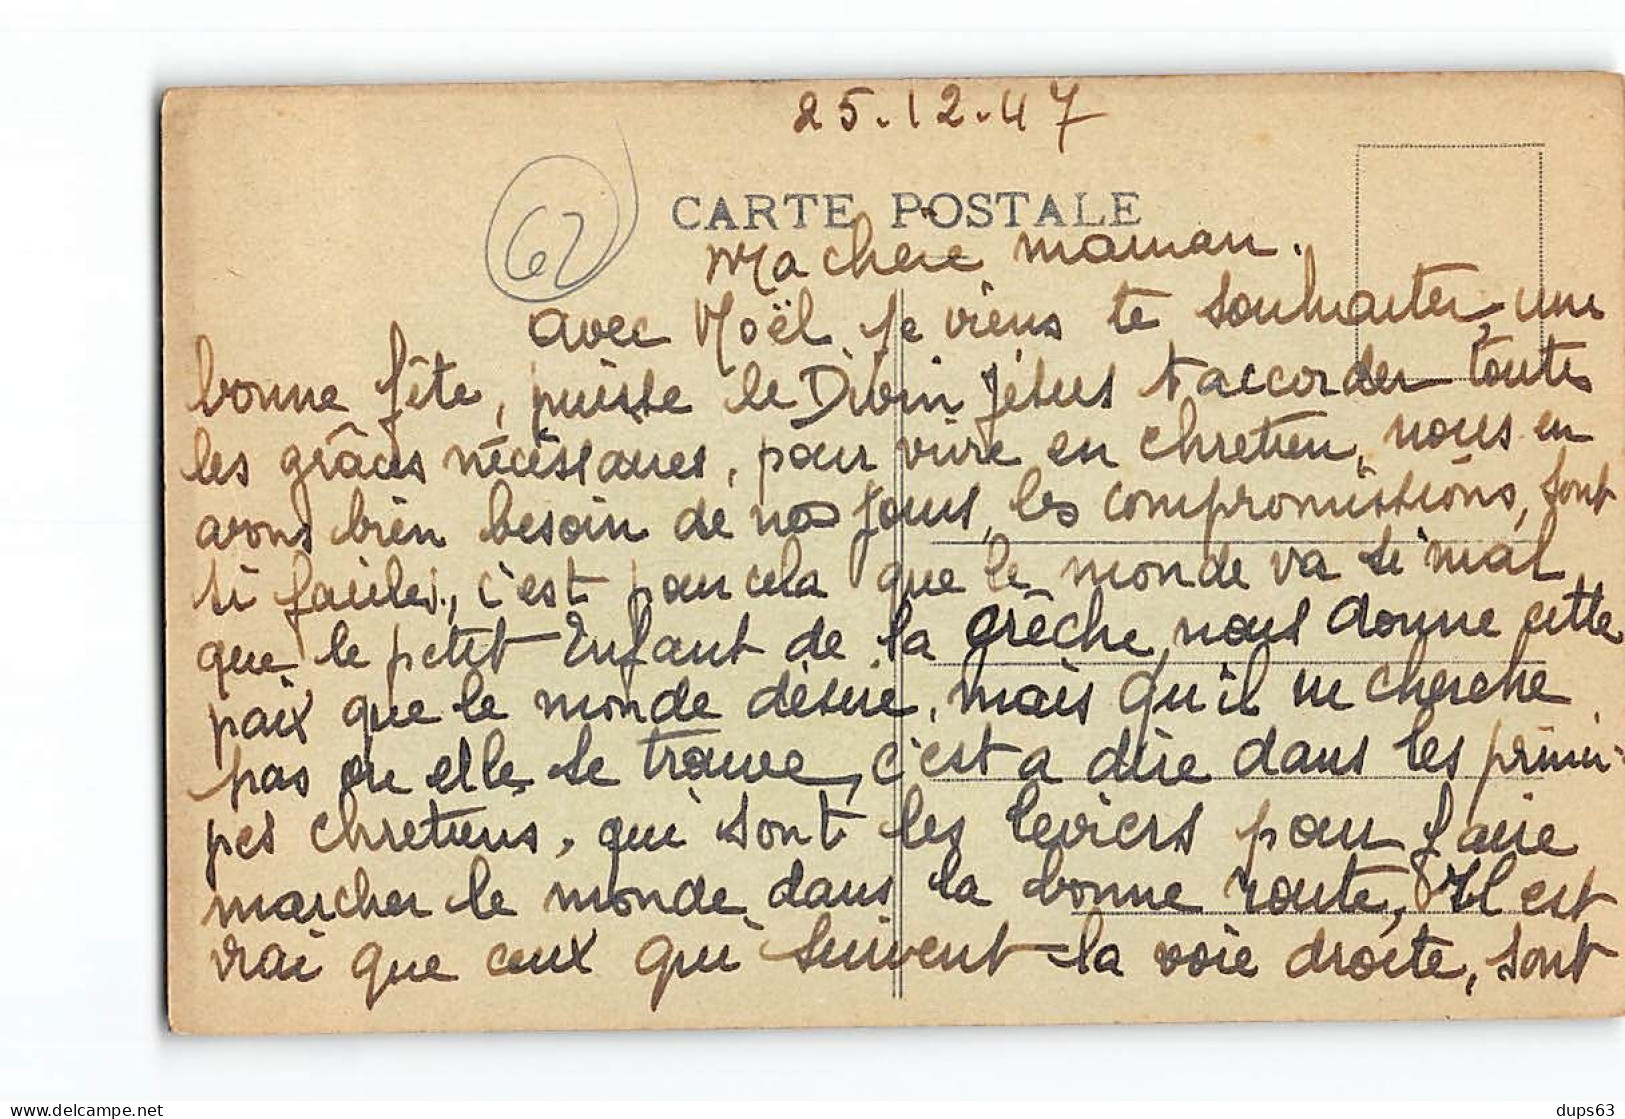 25.12.47
62
CARTE POSTALE
Ma chere maman.
avec Noël je viens te souhaiter, une
bonne fête, puisse le Divin Jésus t'accorder toutes
les grâces nécessaires, pour vivre en chretien, nous en
avons bien besoin de nos jours, les compromissions, sont
si faciles, c'est pour cela que le monde va si mal
que le petit Enfant de la Crêche, nous donne cette
paix que le monde désire, mais qu'il ne cherche
pas ou elle se trouve, c'est a dire dans les princi-
pes chretiens, qui sont les leviers pour faire
marcher le monde dans la bonne route, Il est
vrai que ceux qui suivent la voie droite, sont
dups63